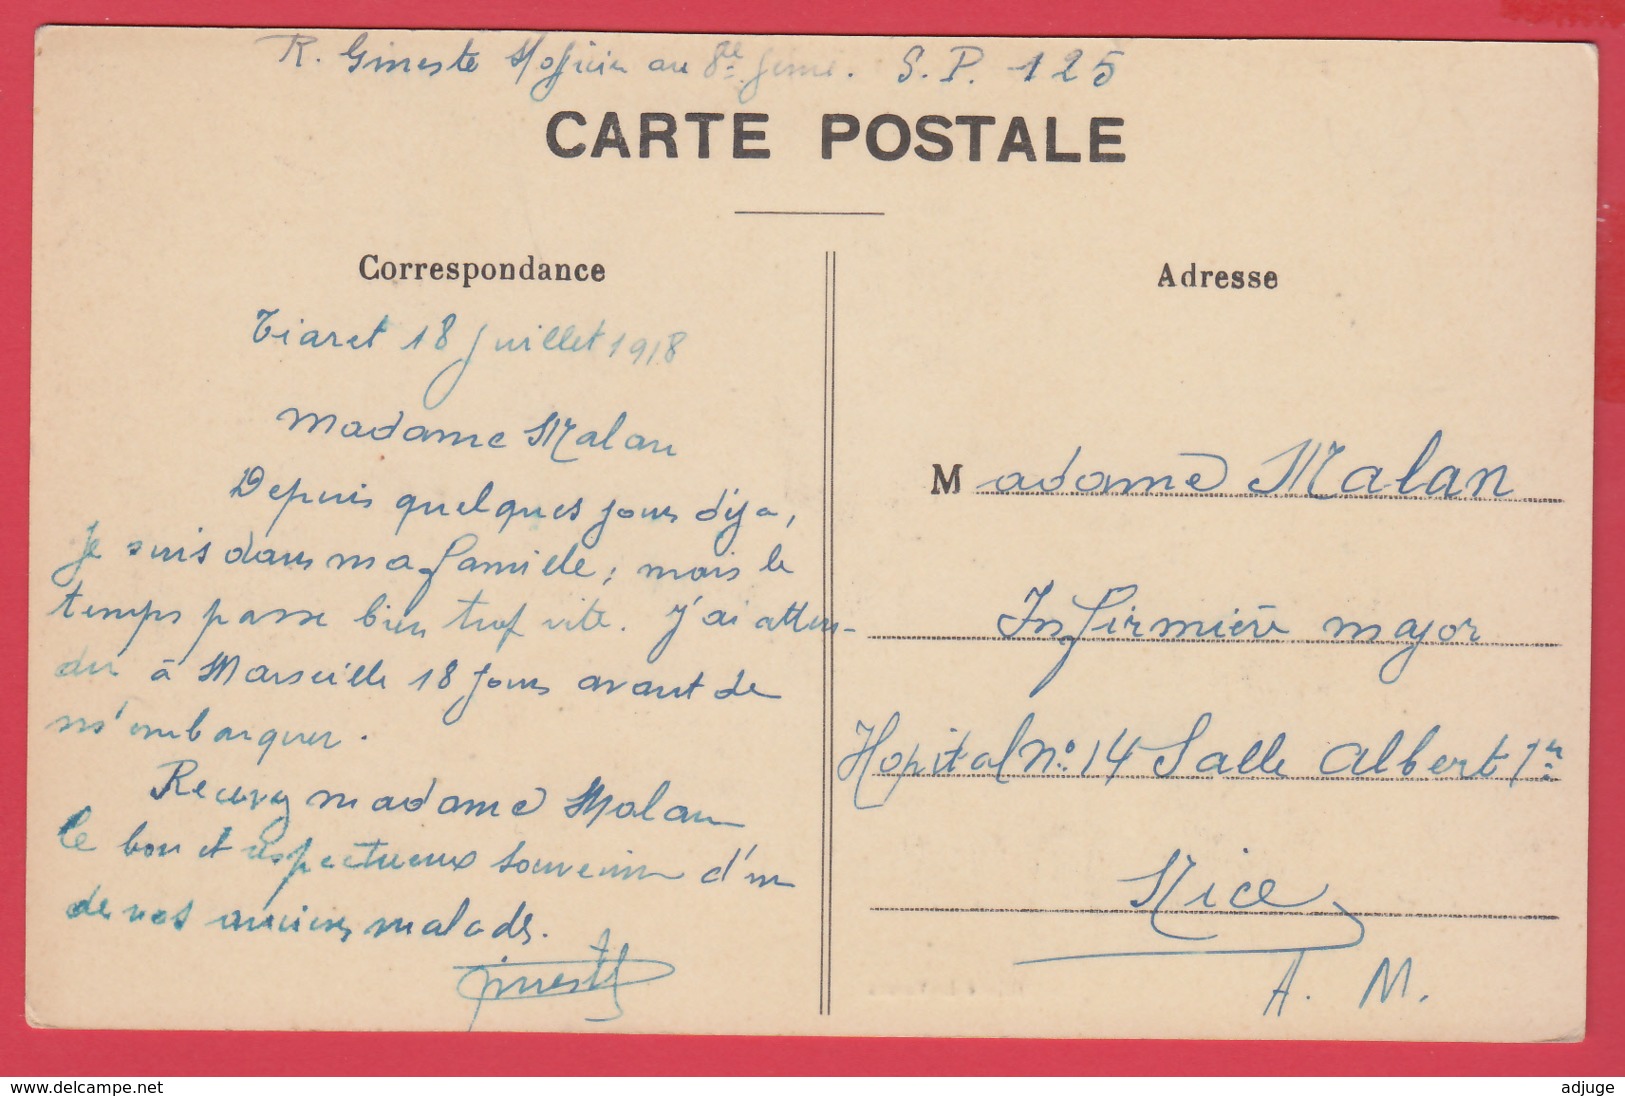 R. Gineste au 8e S. P. 125
CARTE POSTALE
Correspondance
Tiaret 18 Juillet 1918
Madame Malan
Depuis quelques jours déja,
je suis dans ma famille; mais le
temps passe bien trop vite. J'ai atten-
du à Marseille 18 jours avant de
m'embarquer.
Recevez madame Malan
le bon et respectueux souvenir d'un
de vos anciens malades.
Gineste
Adresse
Madame Malan
Infirmière major
Hopital No 14 Salle Albert 1er
Nice
A. M.
delcampe.net
adjuge